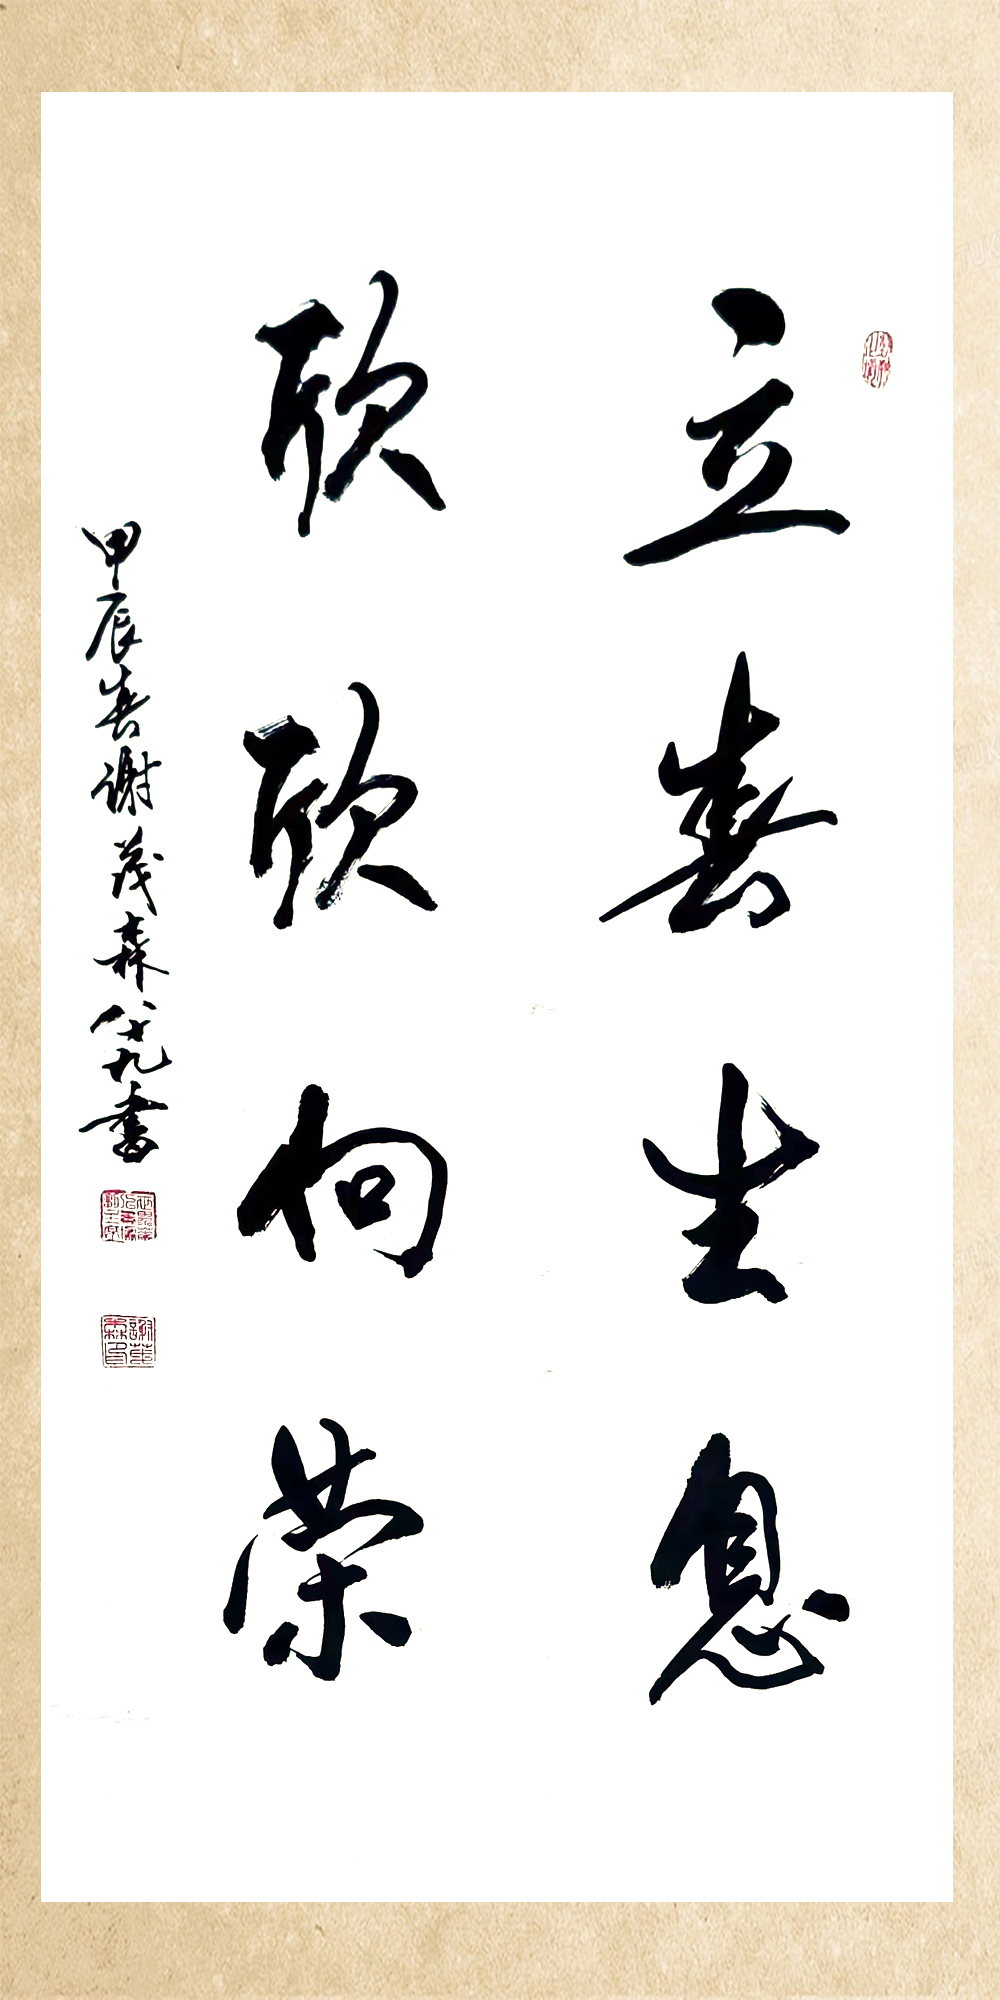 立春生息
欣欣向荣
甲辰春谢茂森八十九书